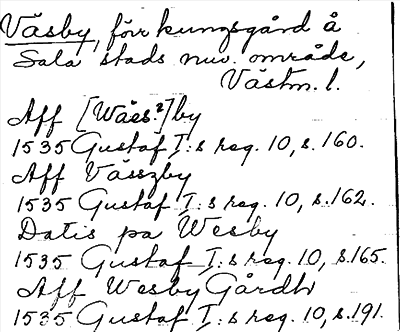 Väsby, förr kungsgård å
Sala stads nuv. område,
Västm. l.
Aff [Wäes?]by
1535 Gustaf I:s reg. 10, s. 160.
Aff Vässzby
1535 Gustaf I:s reg. 10, s. 162.
Datis pa Wesby
1535 Gustaf I:s reg. 10, s. 165.
Aff Wesby Gårdh
1535 Gustaf I:s reg. 10, s. 191.